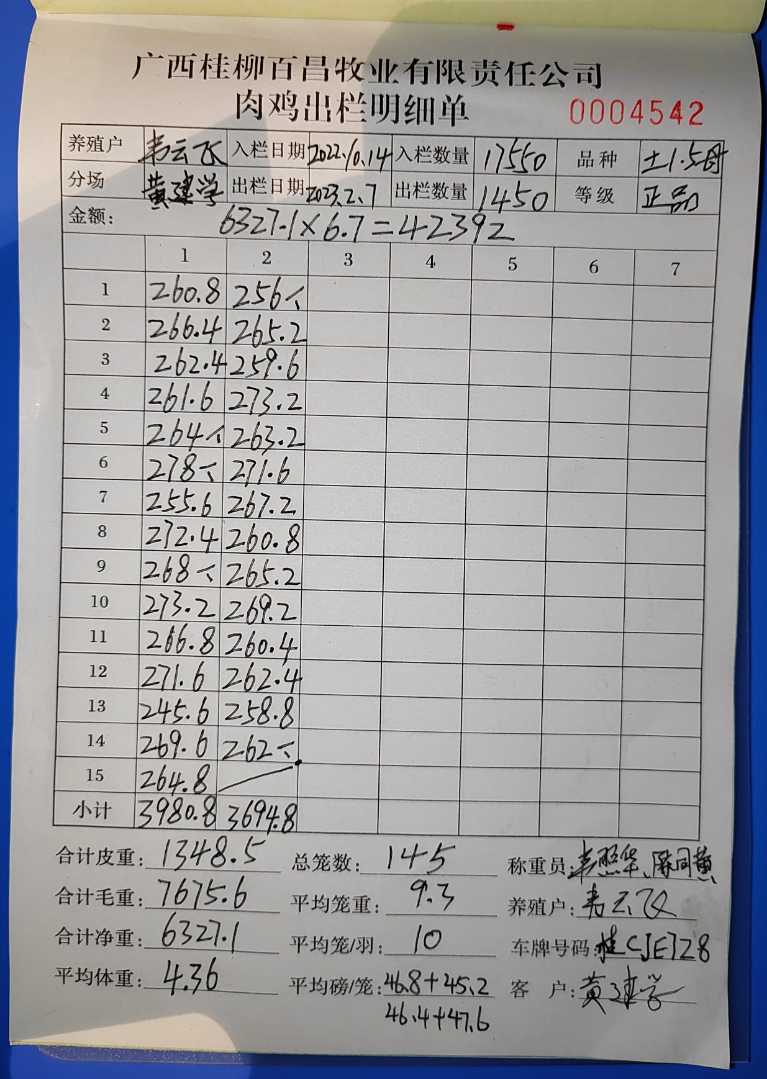 广西桂柳百昌牧业有限责任公司
肉鸡出栏明细单 0004542
养殖户 韦云飞 入栏日期 2022.10.14 入栏数量 17550 品种 土1.5母
分场 黄建学 出栏日期 2023.2.7 出栏数量 1450 等级 正品
金额: 6327.1×6.7=42392
1 2 3 4 5 6 7
1 260.8 256
2 266.4 265.2
3 262.4 259.6
4 261.6 273.2
5 264 263.2
6 278 271.6
7 255.6 267.2
8 272.4 260.8
9 268 265.2
10 273.2 269.2
11 266.8 260.4
12 271.6 262.4
13 245.6 258.8
14 269.6 262
15 264.8
小计 3980.8 3694.8
合计皮重: 1348.5 总笼数: 145 称重员: 韦照华、陈同黄
合计毛重: 7675.6 平均笼重: 9.3 养殖户: 韦云飞
合计净重: 6327.1 平均笼/羽: 10 车牌号码: 桂CJE728
平均体重: 4.36 平均磅/笼: 46.8+45.2 客 户: 黄建学
46.4+47.6